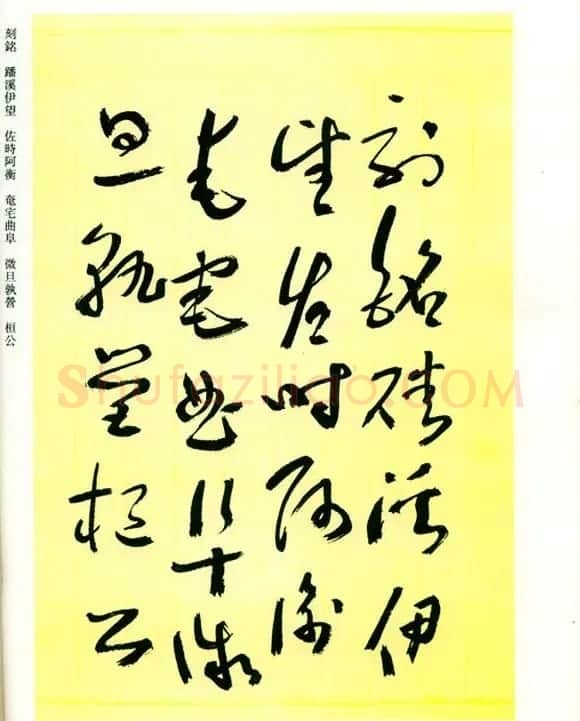 刻銘磻溪伊
望佐時阿衡
奄宅曲阜微
旦孰營桓公
刻銘 蹯溪伊望 佐時阿衡 奄宅曲阜 微旦孰營 桓公
Shufaziliao.COM